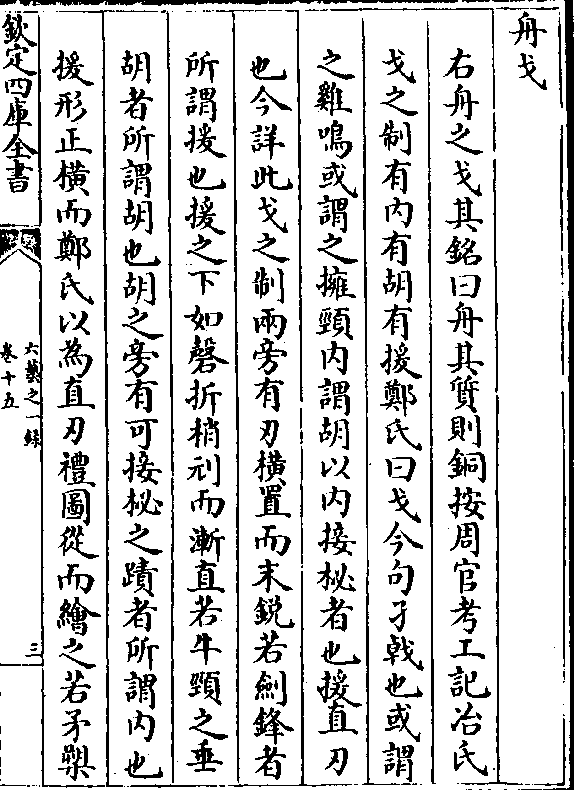 舟戈
右舟之戈其銘曰舟其質則銅按周官考工記冶氏
戈之制有内有胡有援鄭氏曰戈今句孑㦸也或謂
之雞鳴或謂之擁頸内謂胡以内接柲者也援直刃
也今詳此戈之制兩旁有刃横置而末銳若劍鋒者
所謂援也援之下如磬折稍刓而漸直若牛頸之垂
胡者所謂胡也胡之旁有可接柲之蹟者所謂内也
援形正横而鄭氏以為直刃禮圖從而繪之若矛槊
欽定四庫全書
六藝之一録
卷十五
三